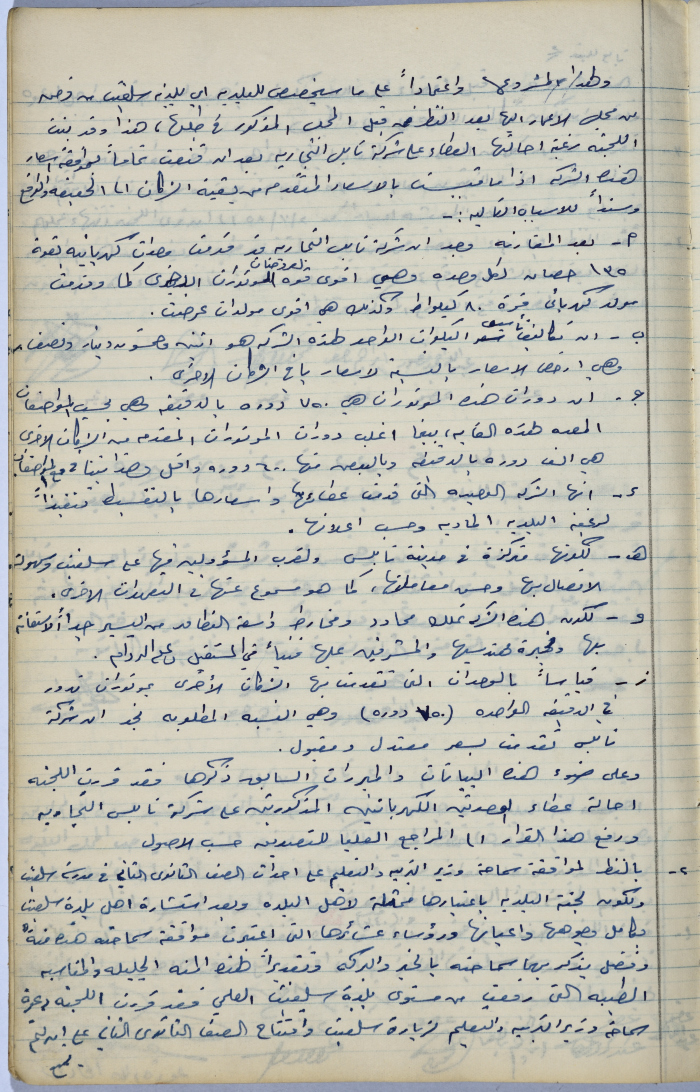 ولهذا المشروع واعتماداً على ما سيخصص للبلدية اي بلدية سلفيت من قرض
من مجلس الاعمار اليها بعد النظر من قبل المجلس المذكور في طلبها، هذا وقد بنت
اللجنة رغبة احالتها العطاء على شركة نابلس التجارية بعد ان قنعت تماماً بموافقة اسعار
هذه الشركة اذا ما قيست بالاسعار المتقدمة من بقية الشركات اما الحقيقة والواقع
وسنداً للاسباب التالية :-
أ - بعد المقارنة وجد ان شركة نابلس التجارية قد قدمت وحدات كهربائية بقوة
١٣٥ حصان لكل وحدة وهي اقوى قوة الموتورات الاخرى كما وقدمت
مولد كهربائي قوة ٨٠ كيلواط وكذلك هي اقوى مولدات عرضت .
ب - ان تكاليف الكيلوات الواحد لهذه الشركة هو اثنين وخمسون دينار ونصف
وهي ارخص الاسعار بالنسبة لاسعار باقي الشركات الاخرى .
ج - ان دورات هذه الموتورات هي ٧٥٠ دورة بالدقيقة وهي بحسب المواصفات
المعده لهذه الغاية، بينما اغلب دورات الموتورات المقدمة من الشركات الاخرى
هي الف دورة بالدقيقة وبالبعض منها ٦٠٠ دورة واقل وهذا يتنافى مع المواصفات
د - انها الشركة الوحيدة التي قدمت عطاءها واسعارها بالتقسيط تنفيذاً
لرغبة البلدية المادية وحسب اعلانها .
هـ - لكونها متركزة في مدينة نابلس ولقرب المسؤولين فيها على سلفيت وسهولة
الاتصال بها وحسن معاملتها، كما هو مسموع عنها في التعهدات الاخرى .
و - لكون هذه الشركة تملك محادد ومخارط واسعة النطاق من اليسير جداً الاستعانة
بها وبخبرة مهندسيها والمشرفين عليها فنياً في المستقبل وعلى الدوام .
ز - قياساً بالوحدات التي تقدمت بها الشركات الأخرى بموتورات تدور
في الدقيقة الواحدة (٧٥٠ دورة) وهي النسبة المطلوبة نجد ان شركة
نابلس تقدمت بسعر معتدل ومقبول .
وعلى ضوء هذه البيانات والمبررات السابق ذكرها فقد قررت اللجنة
احالة عطاء الوحدتين الكهربائيتين المذكورتين على شركة نابلس التجارية
ورفع هذا القرار الى المراجع العليا للتصديق حسب الاصول
٢- بالنظر لموافقة سماحة وزير التربية والتعليم على احداث الصف الثانوي الثاني في مدرسة سلفيت
ولكون لجنة البلدية باعتبارها ممثلة لأهل البلدة وبعد استشارة اهل بلدة سلفيت
بكامل وجوهها واعيانها ورؤساء عشائرها التي اعتبرت موافقة سماحته هذه منة
وفضل يذكر بهما سماحته بالخير والبركة وتقديراً لهذه المنه الجليلة والمناسبة
الطيبة التي رفعت من مستوى بلدة سلفيت العلمي فقد قررت اللجنة دعوة
سماحة وزير التربية والتعليم لزيارة سلفيت وافتتاح الصف الثانوي الثاني على ان تتم